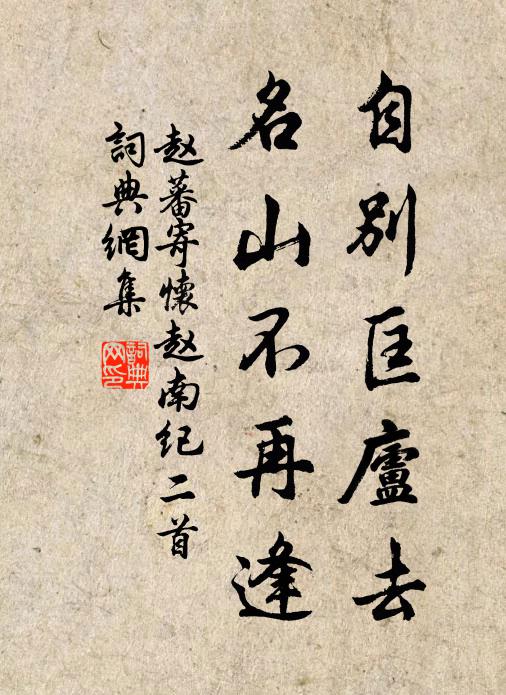 自別匡廬去
名山不再逢
赵蕃寄懷赵南纪二首
詞典網集
詞典
网印